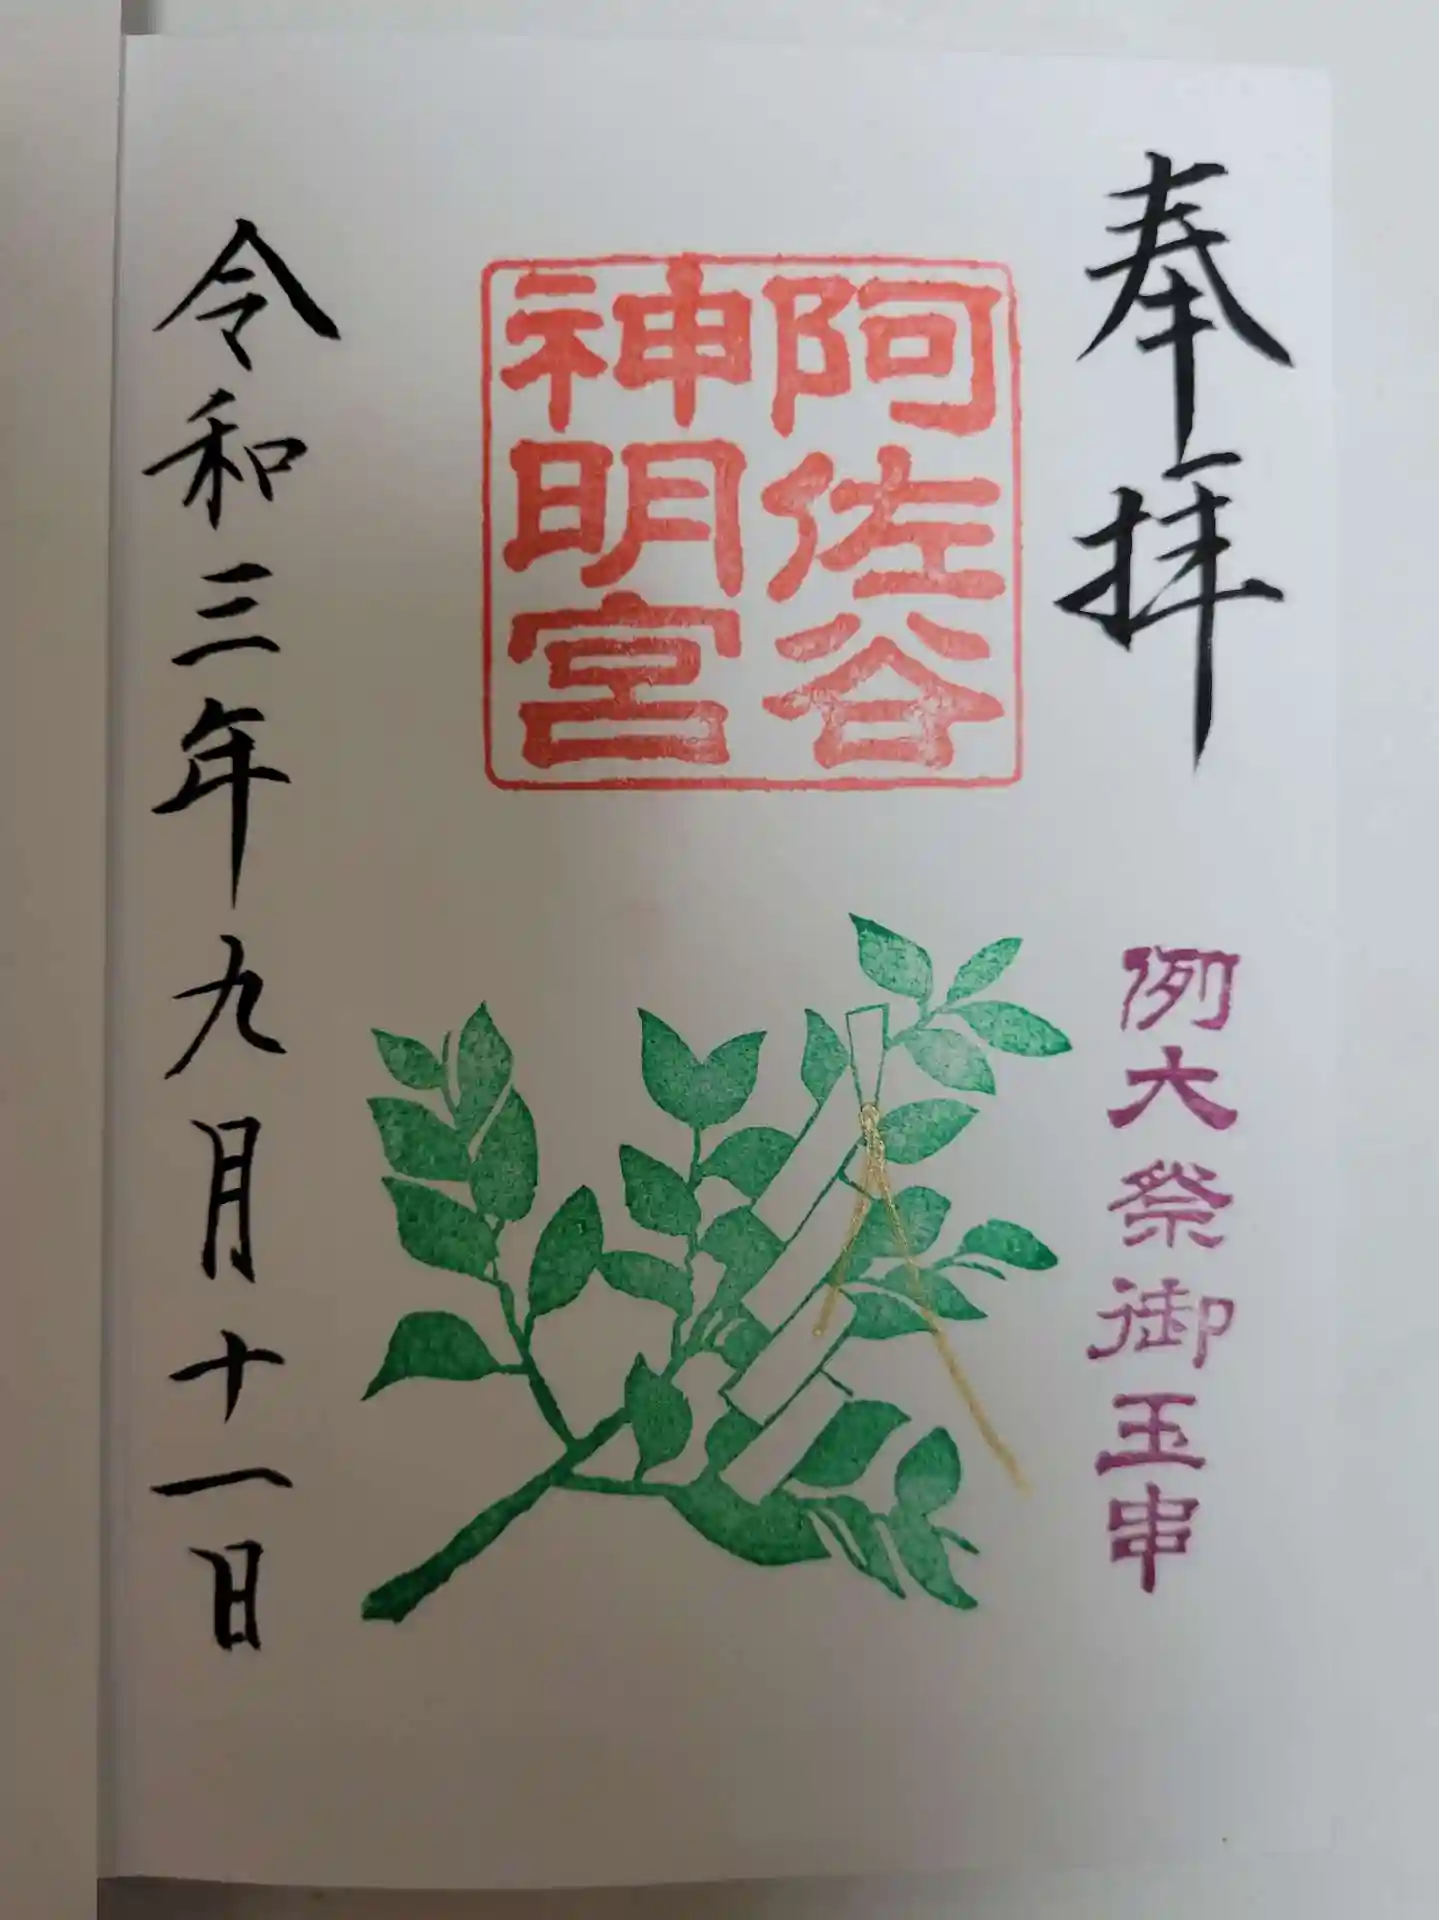 奉拝
例大祭御玉串
阿佐谷
神明宮
令和三年九月十一日